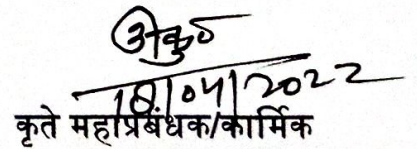 अंकुर
18/04/2022
कृते महाप्रबंधक/कार्मिक